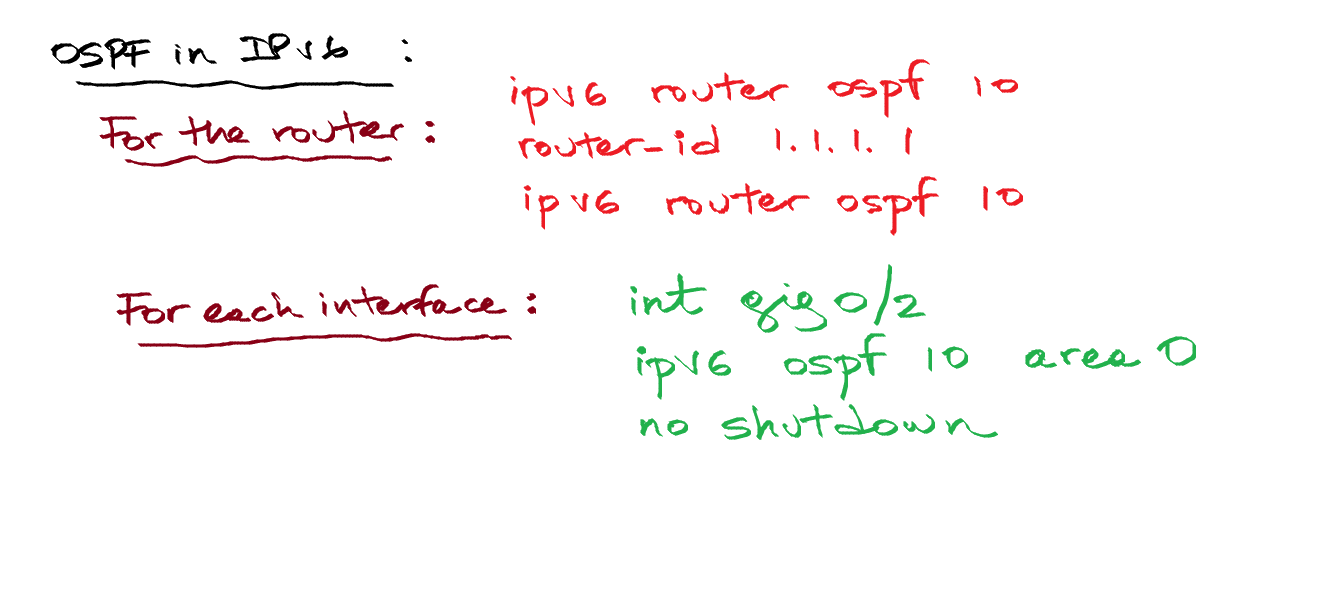 OSPF in IPv6 :
For the router : ipv6 router ospf 10
router-id 1.1.1.1
ipv6 router ospf 10
For each interface : int gig 0/2
ipv6 ospf 10 area 0
no shutdown